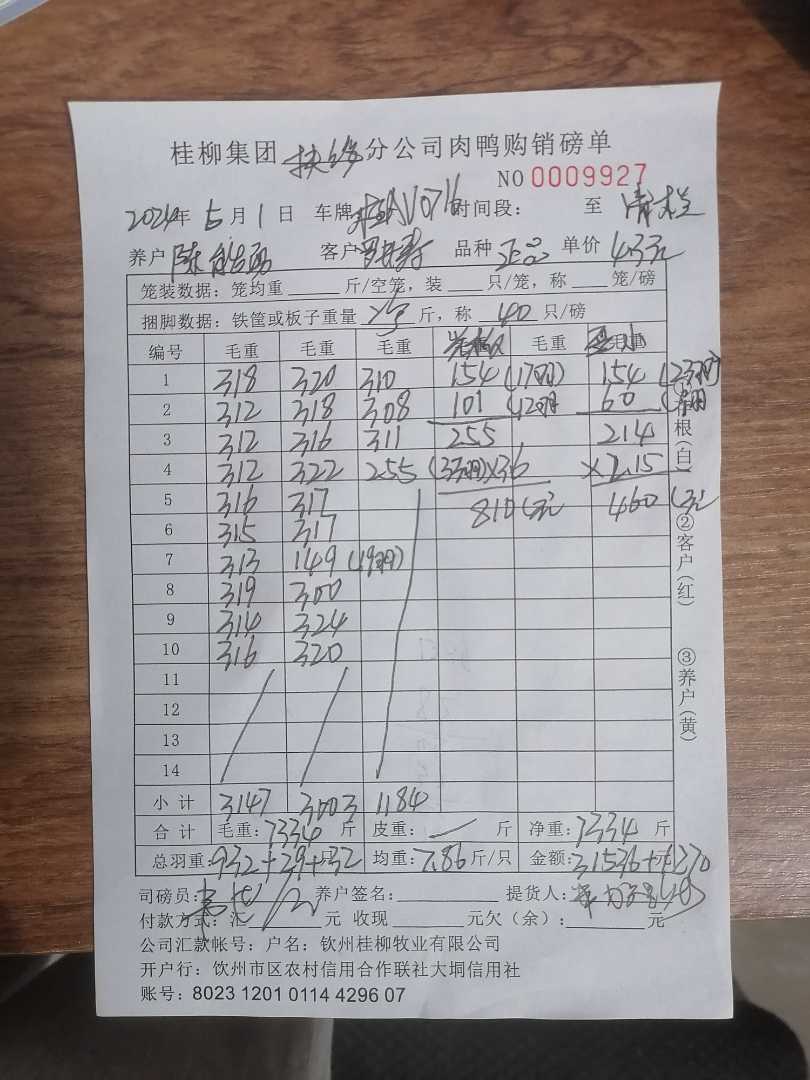 桂柳集团 分公司肉鸭购销磅单
NO 0009927
2024年 5月 1日 车牌 V0716 时间段: 至
养户 陈 客户 罗 品种 正品 单价 4.3元
笼装数据: 笼均重 斤/空笼, 装 只/笼, 称 笼/磅
捆脚数据: 铁筐或板子重量 斤, 称 40 只/磅
编号 毛重 毛重 毛重 毛重 毛重
1 318 320 310 154 (17羽) 154 (23羽)
2 312 318 308 101 (12羽 60
3 312 316 311 255 214
4 312 322 255 (33羽) ×3.6 ×2.15
5 316 317 810 (元 460 (元
6 315 317
7 313 149 (19羽)
8 319 300
9 314 324
10 316 320
11
12
13
14
小计 3147 3003 1184
合计 毛重: 7334 斤 皮重: 斤 净重: 7334 斤
总羽重: 932+29+32 只 均重: 7.86 斤/只 金额: 31536+1270
司磅员: 养户签名: 提货人:
付款方式: 汇 元 收现 元欠(余): 元
公司汇款帐号: 户名: 钦州桂柳牧业有限公司
开户行: 钦州市区农村信用合作联社大垌信用社
账号: 8023 1201 0114 4296 07
根(白)
②客户(红)
③养户(黄)